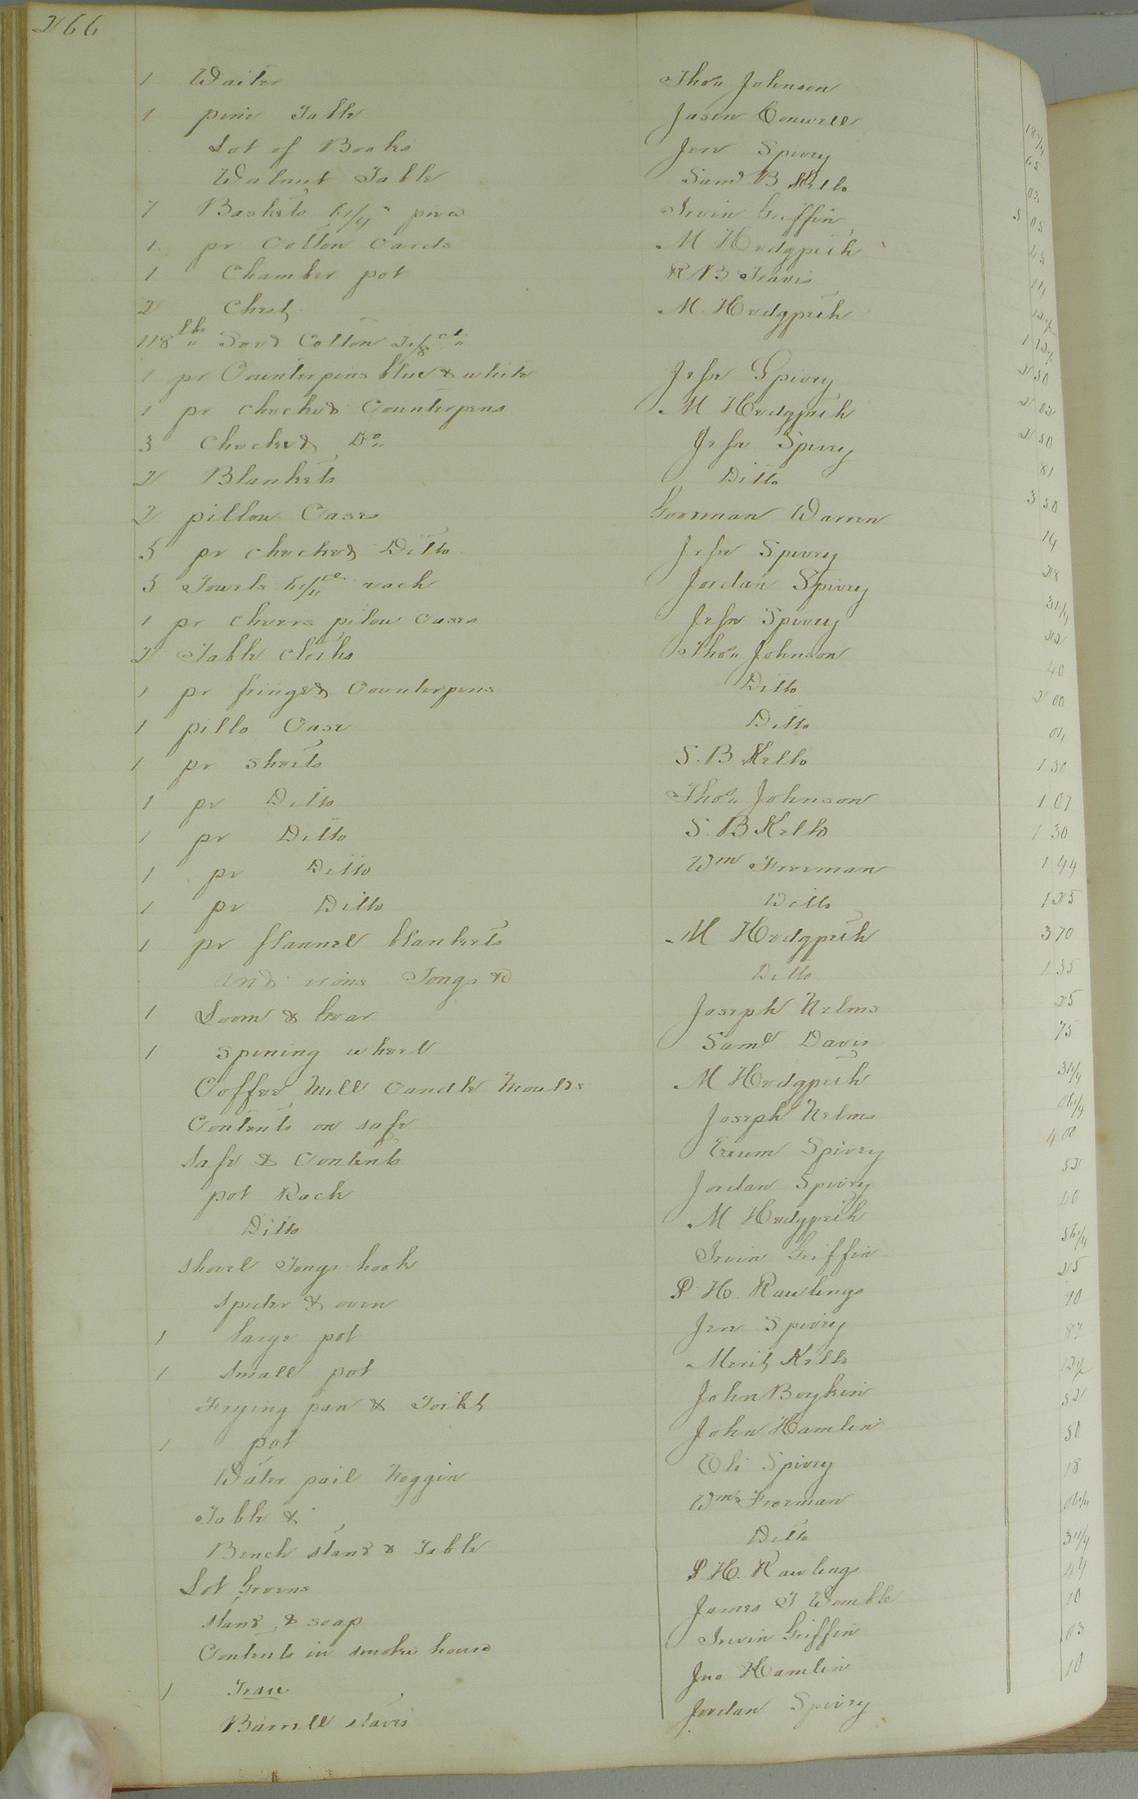 266
1 Waiter Thos Johnson
1 pine Table Jason Councill 18 3/4
Lot of Books Jere Spivey 65
Walnut Table Saml B Kello 03
7 Baskets piece Irvin Griffin 5 05
1 pr Cotton Cards M Hedgpeth
1 Chamber pot R B Travis
2 Chest M Hedgpeth
118 lbs Seed Cotton
1 pr Counterpins blue & white Jesse Spivey 2 50
1 pr checked Counterpens M Hedgpeth 2 02
3 Checked Do Jesse Spivey 2 50
2 Blankets Ditto 81
2 pillow Cases Goodman Warren 3 50
5 pr checked Ditto Jesse Spivey 14
5 Towels each Jordan Spivey 28
1 pr cheers pilow cases Jesse Spivey 31 1/4
2 Table cloths Thos Johnson
1 pr fringed Counterpens Ditto 40
1 pillo Case Ditto 2 00
1 pr sheets S. B Kello
1 pr Ditto Thos Johnson 1 50
1 pr Ditto S. B Kello 1 01
1 pr Ditto Wm Freeman 1 30
1 pr Ditto Ditto 1 44
1 pr flannel blankets M Hedgpeth 1 25
And irons Tongs & Ditto 3 70
1 Loom & Gear Joseph Nelms 1 35
1 Spining wheel Saml Davis 25
Coffee Mill Candle Moulds M Hedgpeth 75
Contents on safe Joseph Nelms 31 1/4
Safe & Contents Exum Spivey 06 1/4
pot Rack Jordan Spivey 4 00
Ditto M Hedgpeth 52
Shovel Tongs hook Irvin Griffin 40
Spider & oven P H. Rawlings 56 1/4
1 large pot Jere Spivey 25
1 Small pot Merit Kello 70
Frying pan & Toilet John Boykin 87
1 pot John Hamlin 12 1/2
Water pail Noggin Eli Spivey 52
Table & Wm Freeman 50
Bench stand & Table Ditto 18
Lot Gourds P H. Rawlings 06 1/4
stand & soap James T Womble 31 1/4
Contents in smoke house Irvin Griffin 44
1 Tray Jno Hamlin 10
Barrell staves Jordan Spivey 03
10